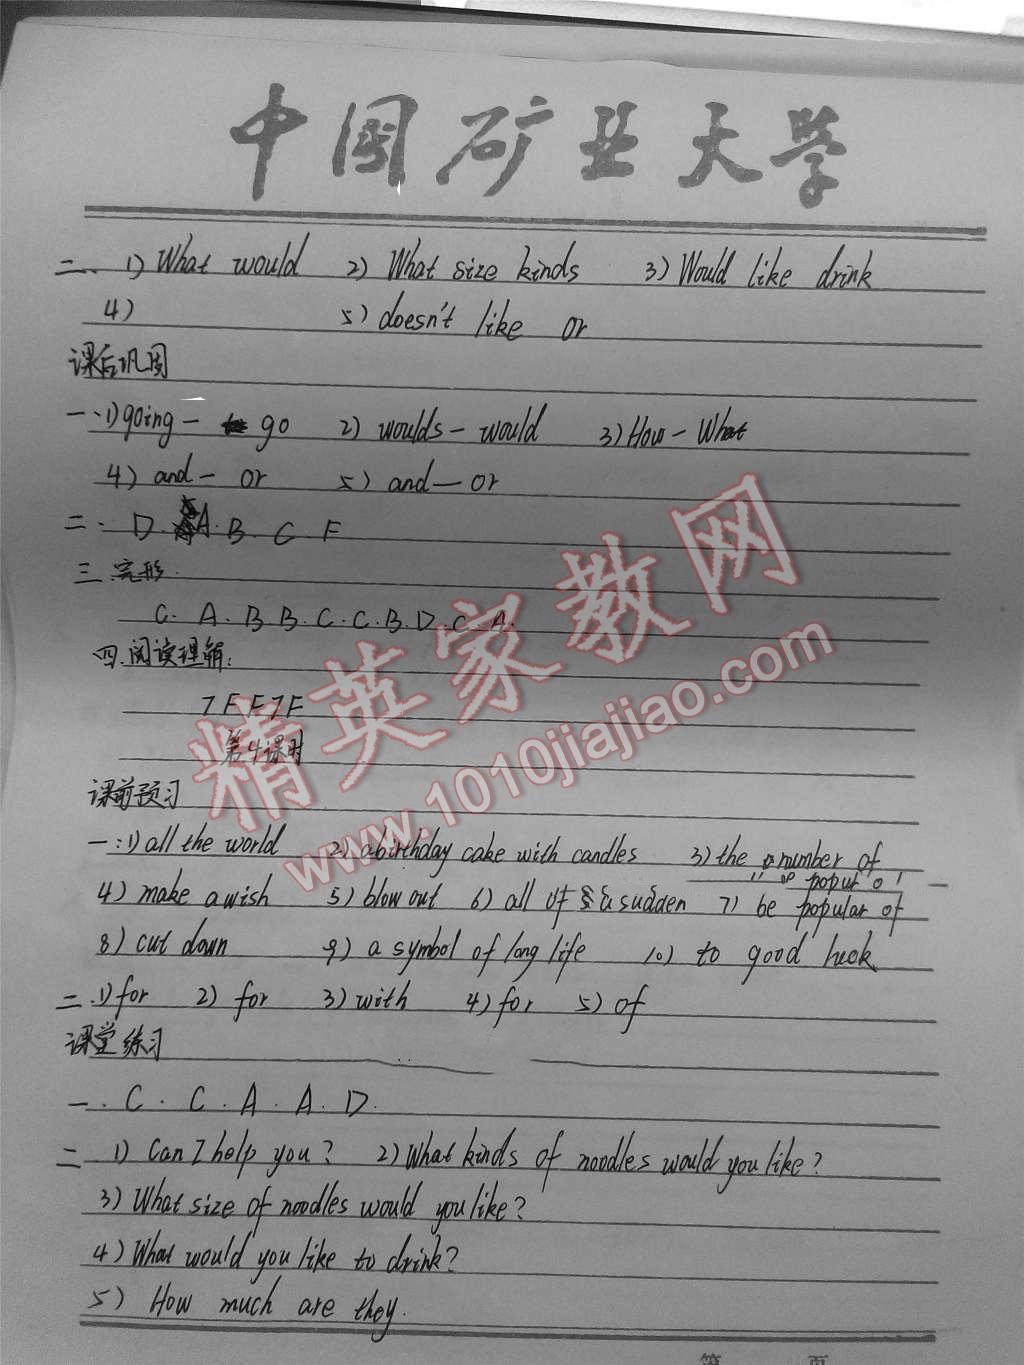 中国矿业大学
二、1) What would 2) What size kinds 3) Would like drink
4) 5) doesn't like or
课后巩固
一、1) going - go 2) woulds - would 3) How - What
4) and - or 5) and - or
二、D. A. B. C F
三.完形.
C. A. B B. C. C. B. D. C. A.
四.阅读理解:
T F F T F
第4课时
课前预习
一:1) all the world 2) a birthday cake with candles 3) the number of
4) make a wish 5) blow out 6) all of a sudden 7) be popular of
8) cut down 9) a symbol of long life 10) to good luck
二.1) for 2) for 3) with 4) for 5) of
课堂练习
一. C. C. A. A. D.
二 1) Can I help you? 2) What kinds of noodles would you like?
3) What size of noodles would you like?
4) What would you like to drink?
5) How much are they.
第 页
精英家教网
www.1010jiajiao.com